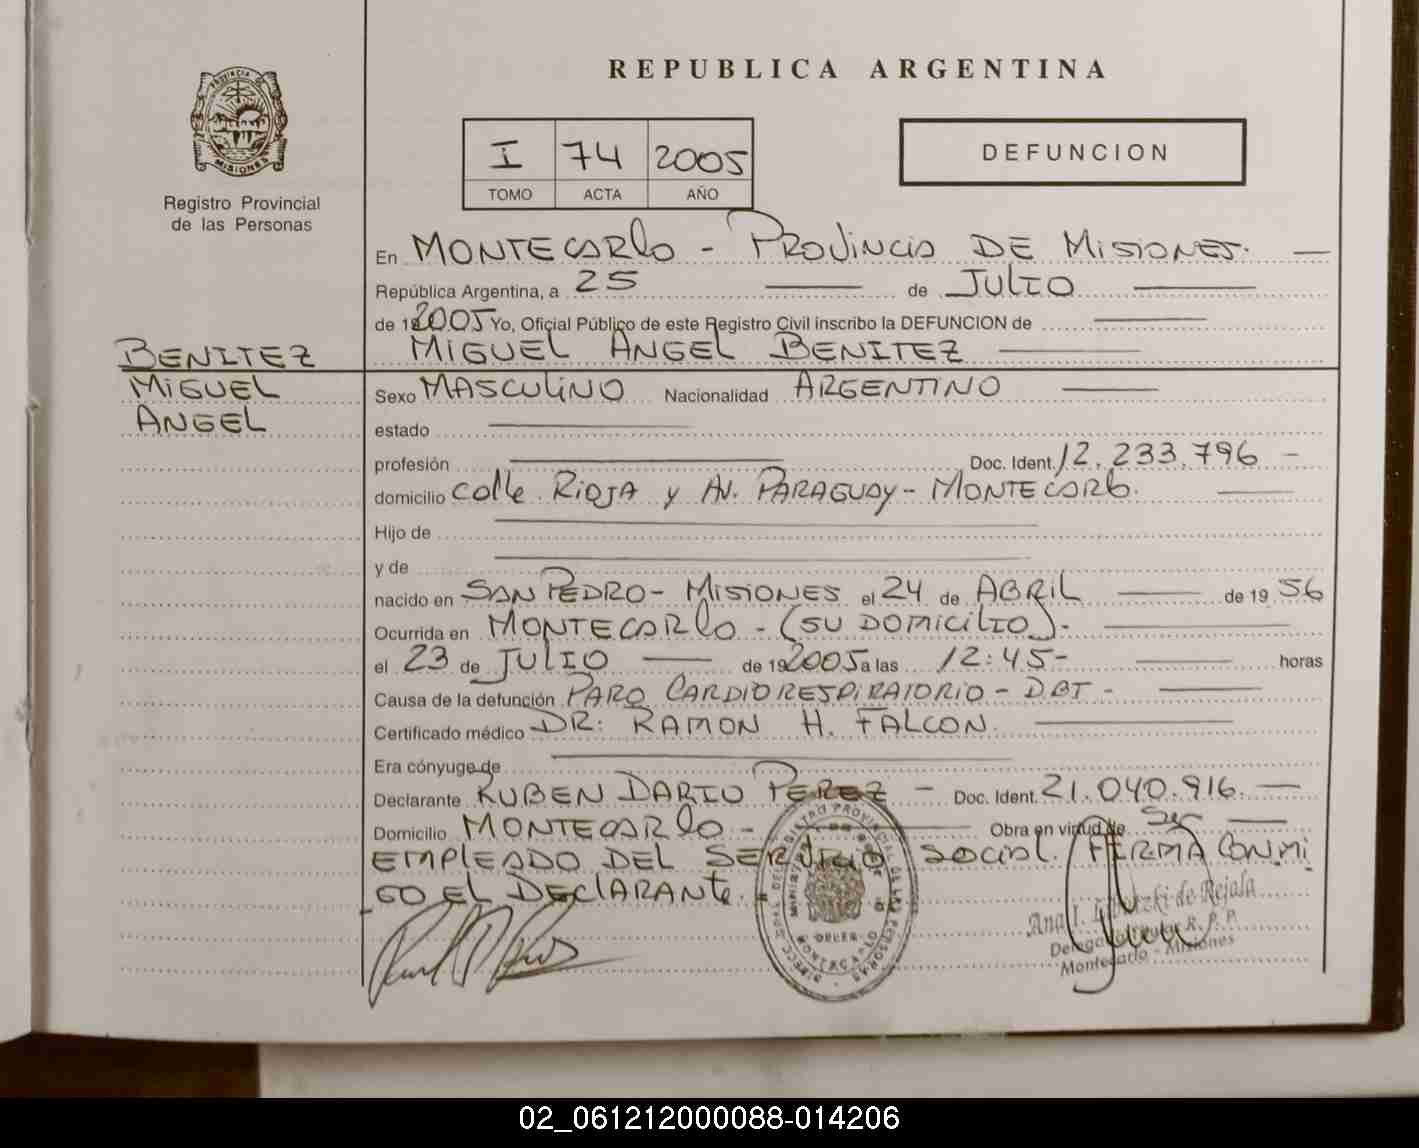 REPUBLICA ARGENTINA
PROVINCIA
MISIONES
Registro Provincial
de las Personas
I 74 2005
TOMO ACTA AÑO
DEFUNCION
En MONTECARLO - PROVINCIA DE MISIONES.
República Argentina, a 25 de JULIO
de 2005 Yo, Oficial Público de este Registro Civil inscribo la DEFUNCION de
MIGUEL ANGEL BENITEZ
BENITEZ
MIGUEL
ANGEL
Sexo MASCULINO Nacionalidad ARGENTINO
estado
profesión Doc. Ident. 12.233.796 -
domicilio Calle RIOJA y AV. PARAGUAY - MONTECARLO.
Hijo de
y de
nacido en SAN PEDRO - MISIONES el 24 de ABRIL de 19 56
Ocurrida en MONTECARLO - (SU DOMICILIO). -
el 23 de JULIO de 192005 a las 12:45 - horas
Causa de la defunción PARO CARDIORESPIRATORIO - DBT -
Certificado médico DR: RAMON H. FALCON.
Era cónyuge de
Declarante RUBEN DARIO PEREZ - Doc. Ident. 21.040.916.
Domicilio MONTECARLO - Obra en virtud de Ser
EMPLEADO DEL SERVICIO SOCIAL. FIRMA CONMI
GO EL DECLARANTE.
Ana de Rejala
R. P. P.
Montecarlo - Misiones
02_061212000088-014206